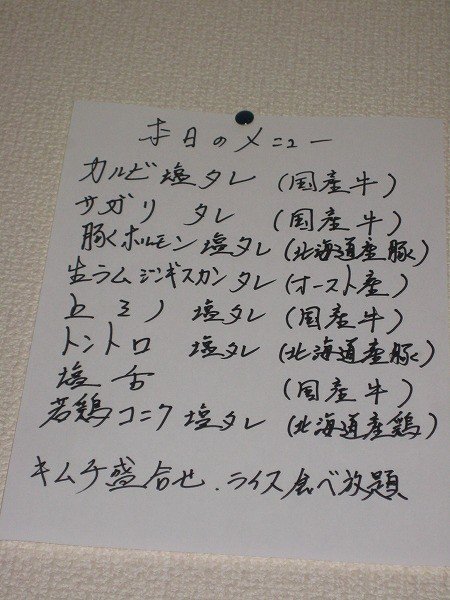 本日のメニュー
カルビ 塩タレ (国産牛)
サガリ タレ (国産牛)
豚ホルモン 塩タレ (北海道産豚)
生ラムジンギスカンタレ (オースト産)
上ミノ 塩タレ (国産牛)
トントロ 塩タレ (北海道産豚)
塩舌 (国産牛)
若鶏コニク 塩タレ (北海道産鶏)
キムチ盛合せ.ライス食べ放題